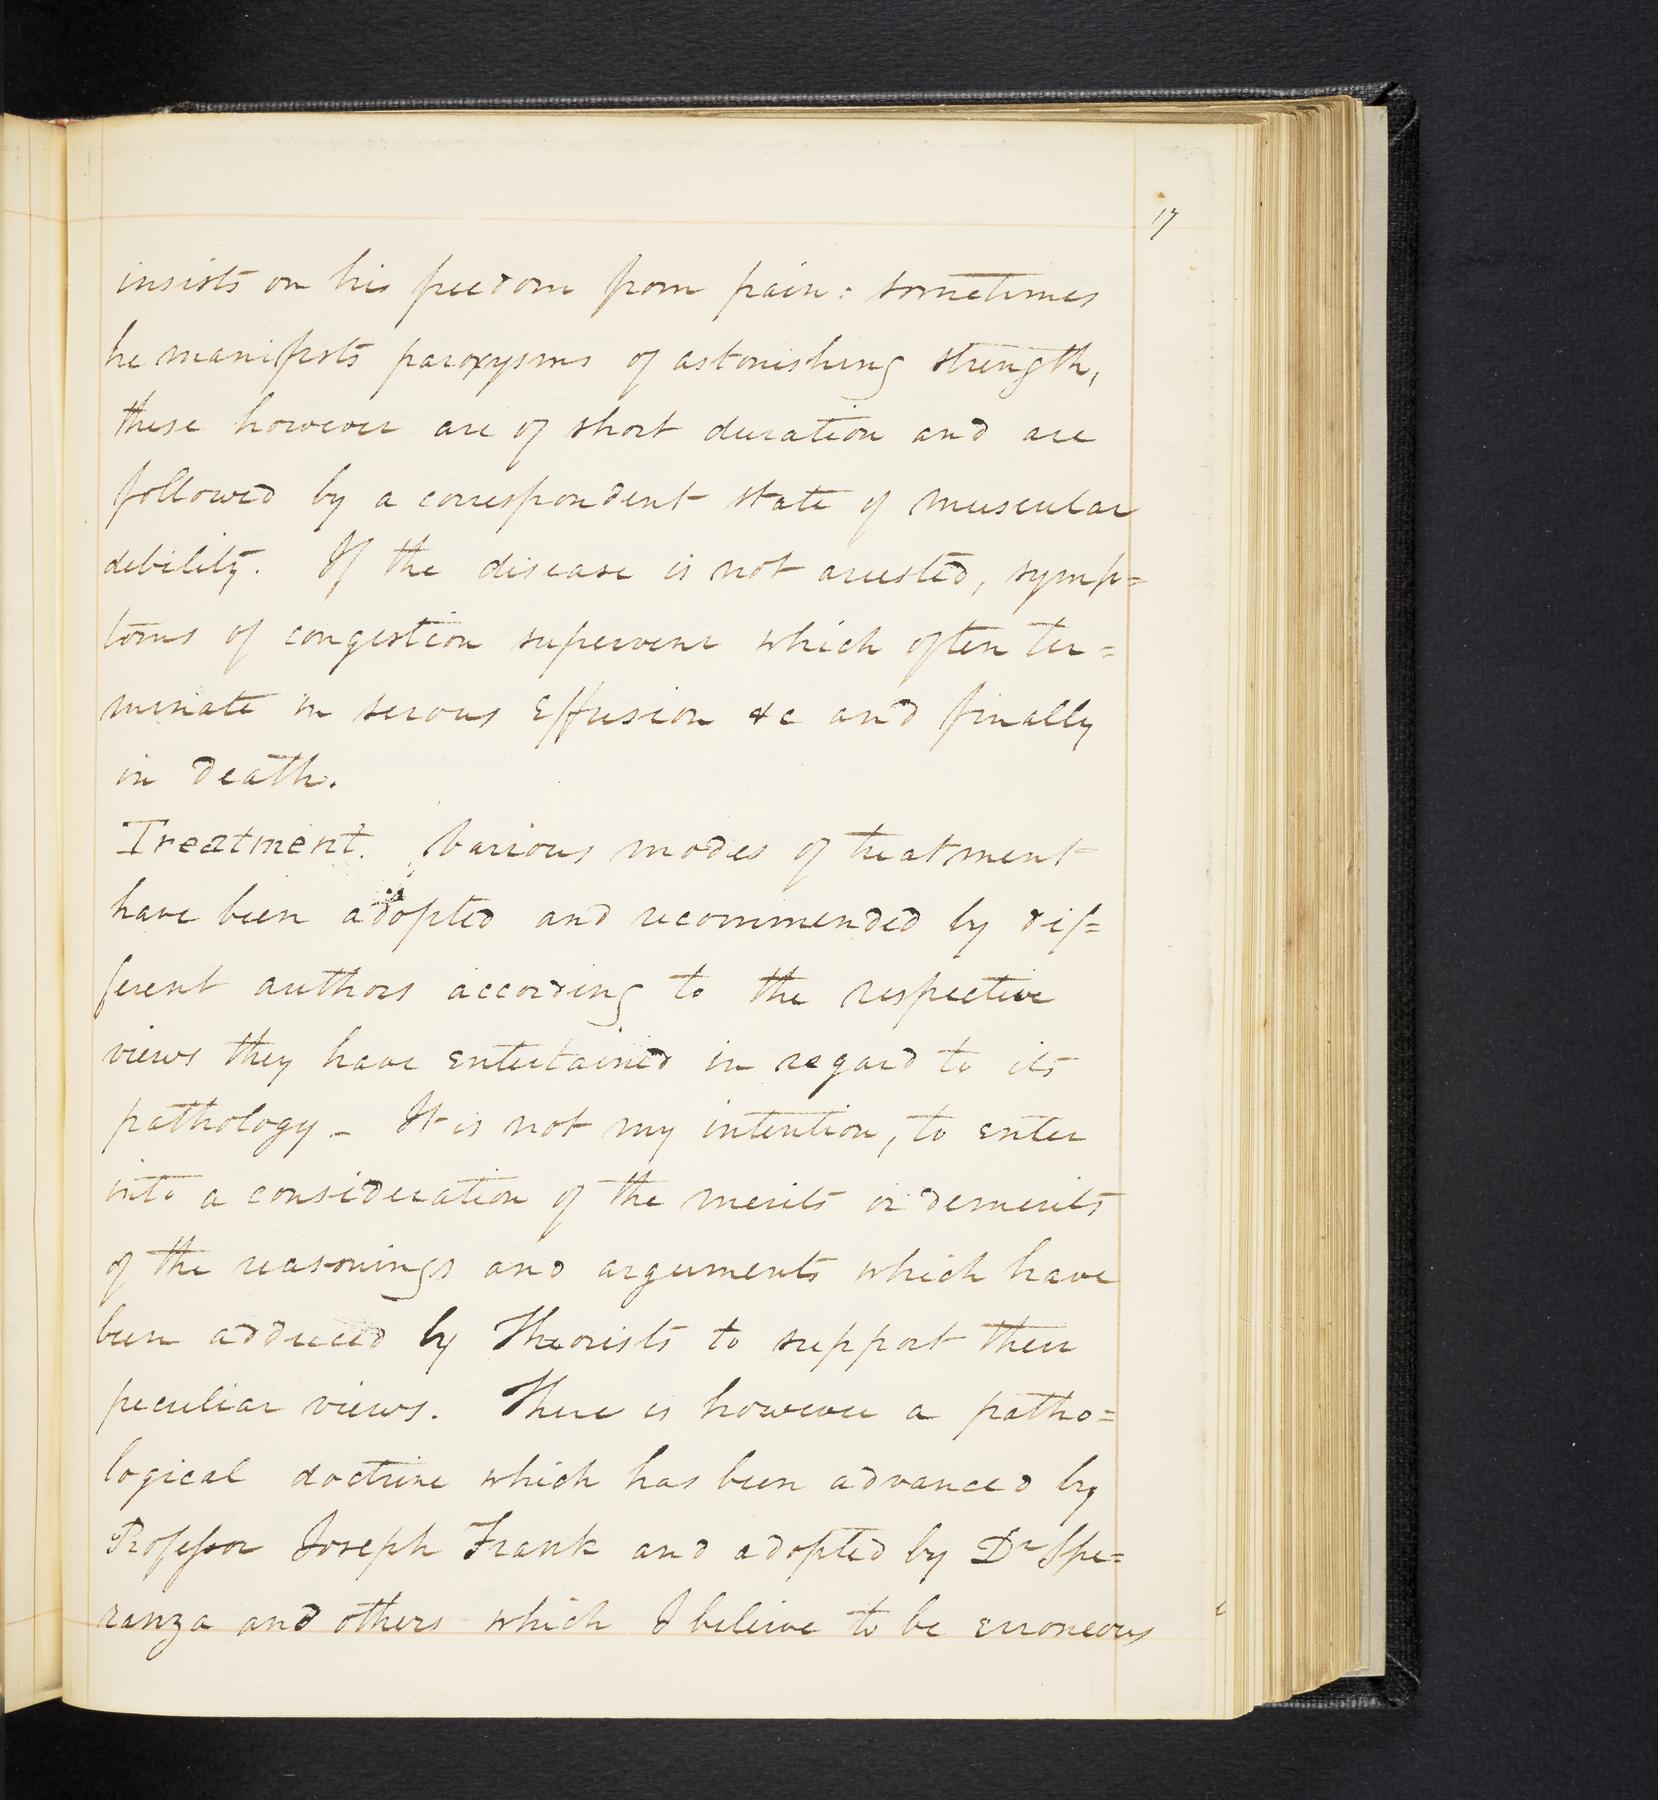 17
insists on his freedom from pain: sometimes
he manifests paroxysms of astonishing strength,
these however are of short duration and are
followed by a correspondent state of muscular
debility. If the disease is not arrested, symp=
toms of congestion supervene which often ter=
minate in serous Effusion &c and finally
in death.
Treatment. Various modes of treatment
have been adopted and recommended by dif=
ferent authors according to the respective
views they have entertained in regard to its
pathology_ It is not my intention, to enter
into a consideration of the merits or demerits
of the reasonings and arguments which have
been adduced by Theorists to support their
peculiar views. There is however a patho=
logical doctrine which has been advanced by
Professor Joseph Frank and adopted by Dr Spe=
ranza and others which I beleive to be erroneous